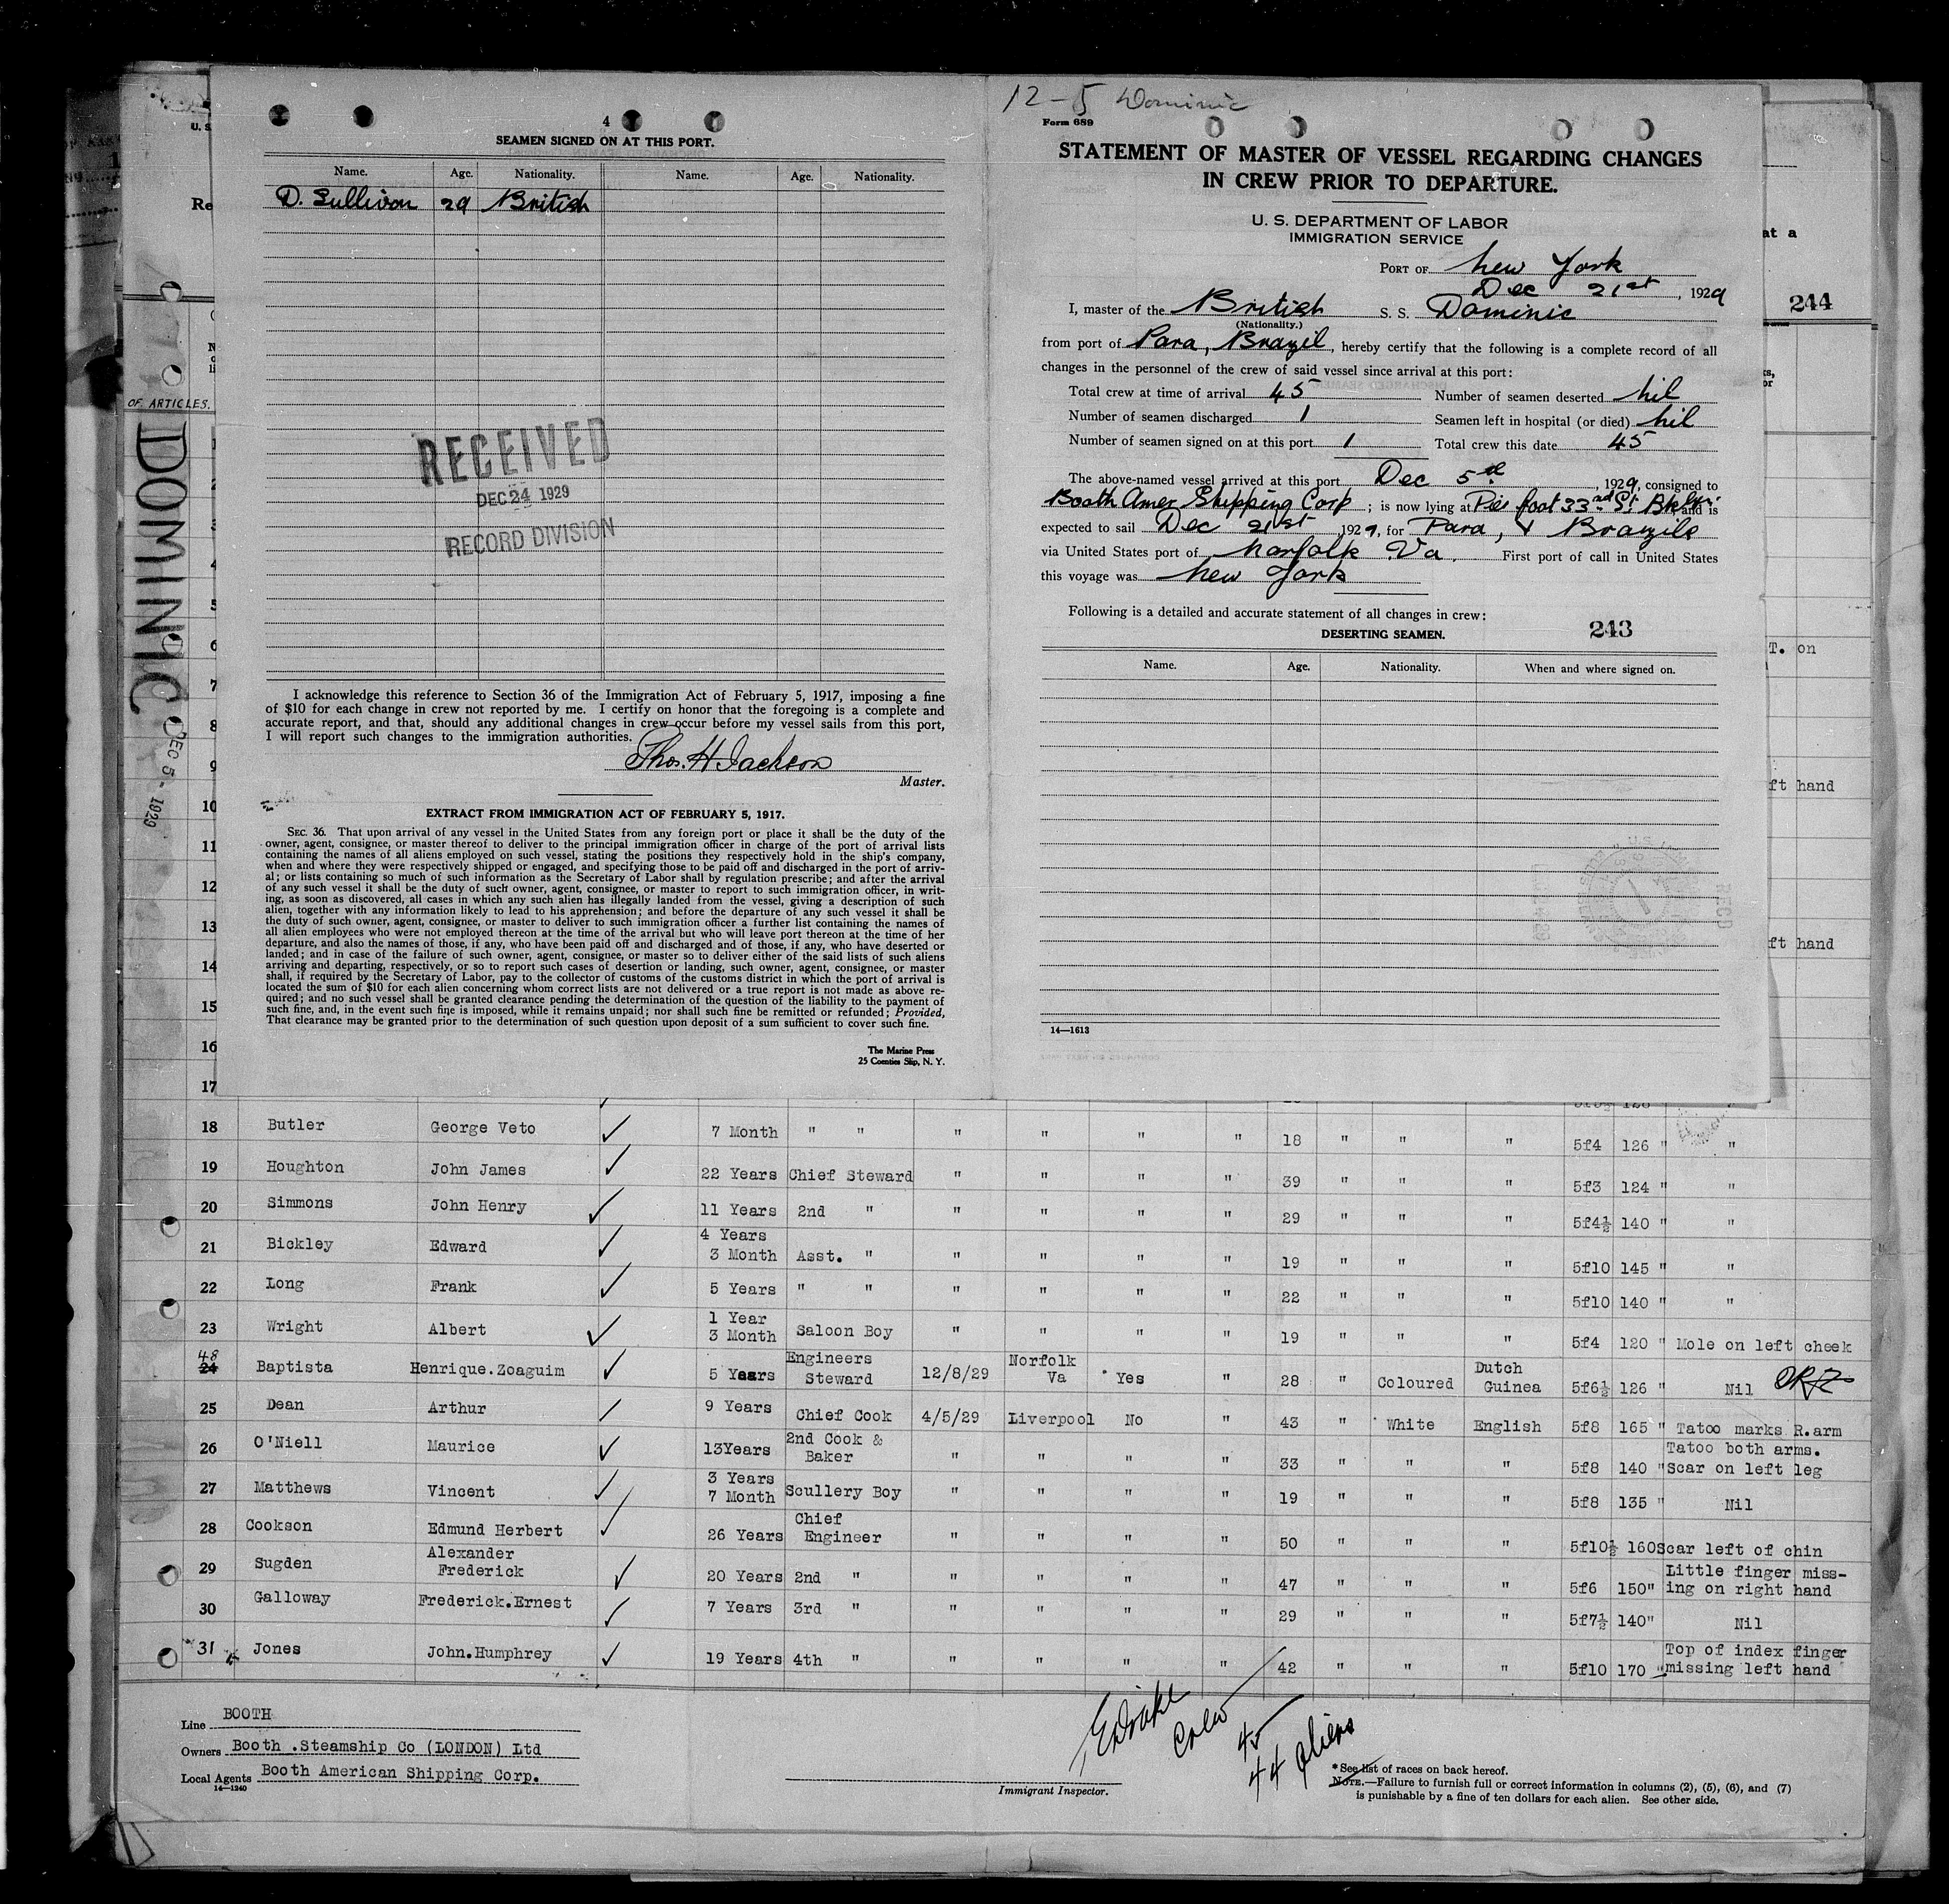 4
SEAMEN SIGNED ON AT THIS PORT.
Name. Age. Nationality. Name. Age. Nationality.
D. Sullivan 29 British
RECEIVED
DEC 24 1929
RECORD DIVISION
I acknowledge this reference to Section 36 of the Immigration Act of February 5, 1917, imposing a fine
of $10 for each change in crew not reported by me. I certify on honor that the foregoing is a complete and
accurate report, and that, should any additional changes in crew occur before my vessel sails from this port,
I will report such changes to the immigration authorities.
Thos. H Jackson
Master.
EXTRACT FROM IMMIGRATION ACT OF FEBRUARY 5, 1917.
SEC. 36. That upon arrival of any vessel in the United States from any foreign port or place it shall be the duty of the
owner, agent, consignee, or master thereof to deliver to the principal immigration officer in charge of the port of arrival lists
containing the names of all aliens employed on such vessel, stating the positions they respectively hold in the ship's company,
when and where they were respectively shipped or engaged, and specifying those to be paid off and discharged in the port of arriv-
al; or lists containing so much of such information as the Secretary of Labor shall by regulation prescribe; and after the arrival
of any such vessel it shall be the duty of such owner, agent, consignee, or master to report to such immigration officer, in writ-
ing, as soon as discovered, all cases in which any such alien has illegally landed from the vessel, giving a description of such
alien, together with any information likely to lead to his apprehension; and before the departure of any such vessel it shall be
the duty of such owner, agent, consignee, or master to deliver to such immigration officer a further list containing the names of
all alien employees who were not employed thereon at the time of the arrival but who will leave port thereon at the time of her
departure, and also the names of those, if any, who have been paid off and discharged and of those, if any, who have deserted or
landed; and in case of the failure of such owner, agent, consignee, or master so to deliver either of the said lists of such aliens
arriving and departing, respectively, or so to report such cases of desertion or landing, such owner, agent, consignee, or master
shall, if required by the Secretary of Labor, pay to the collector of customs of the customs district in which the port of arrival is
located the sum of $10 for each alien concerning whom correct lists are not delivered or a true report is not made as above re-
quired; and no such vessel shall be granted clearance pending the determination of the question of the liability to the payment of
such fine, and, in the event such fine is imposed, while it remains unpaid; nor shall such fine be remitted or refunded; Provided,
That clearance may be granted prior to the determination of such question upon deposit of a sum sufficient to cover such fine.
The Marine Press
25 Coenties Slip, N. Y.
12-5 Dominic
Form 689
STATEMENT OF MASTER OF VESSEL REGARDING CHANGES
IN CREW PRIOR TO DEPARTURE.
U. S. DEPARTMENT OF LABOR
IMMIGRATION SERVICE
PORT OF New York
Dec 21st, 1929
I, master of the British S. S. Dominic
(Nationality.)
from port of Para, Brazil, hereby certify that the following is a complete record of all
changes in the personnel of the crew of said vessel since arrival at this port:
Total crew at time of arrival 45 Number of seamen deserted Nil
Number of seamen discharged 1 Seamen left in hospital (or died) Nil
Number of seamen signed on at this port 1 Total crew this date 45
The above-named vessel arrived at this port Dec 5th, 1929, consigned to
Booth Amer Shipping Corp; is now lying at Pier foot 33rd St. Bklyn. and is
expected to sail Dec 21st 1929, for Para, & Brazils
via United States port of Norfolk Va. First port of call in United States
this voyage was New York
Following is a detailed and accurate statement of all changes in crew:
DESERTING SEAMEN. 243
Name. Age. Nationality. When and where signed on.
14—1613
U. S.
Re
at a
244
OF ARTICLES.
DOMINIC
DEC 5 - 1929
T. on
ft hand
ft hand
1
2
3
4
5
6
7
8
9
10
11
12
13
14
15
16
17
18 Butler George Veto 7 Month " " " " " " 18 " " " 5f4 126 " "
19 Houghton John James 22 Years Chief Steward " " " " 39 " " " 5f3 124 " "
20 Simmons John Henry 11 Years 2nd " " " " " 29 " " " 5f4½ 140 " "
21 Bickley Edward 4 Years 3 Month Asst. " " " " " 19 " " " 5f10 145 " "
22 Long Frank 5 Years " " " " " " 22 " " " 5f10 140 " "
23 Wright Albert 1 Year 3 Month Saloon Boy " " " " 19 " " " 5f4 120 " Mole on left cheek
48
24 Baptista Henrique.Zoaguim 5 Years Engineers Steward 12/8/29 Norfolk Va Yes " 28 " Coloured Dutch Guinea 5f6½ 126 " Nil
25 Dean Arthur 9 Years Chief Cook 4/5/29 Liverpool No " 43 " White English 5f8 165 " Tatoo marks R.arm
26 O'Niell Maurice 13Years 2nd Cook & Baker " " " " 33 " " " 5f8 140 " Tatoo both arms. Scar on left leg
27 Matthews Vincent 3 Years 7 Month Scullery Boy " " " " 19 " " " 5f8 135 " Nil
28 Cookson Edmund Herbert 26 Years Chief Engineer " " " " 50 " " " 5f10½ 160 Scar left of chin
29 Sugden Alexander Frederick 20 Years 2nd " " " " " 47 " " " 5f6 150" Little finger miss- ing on right hand
30 Galloway Frederick.Ernest 7 Years 3rd " " " " " 29 " " " 5f7½ 140" Nil
31 Jones John.Humphrey 19 Years 4th " " " " " 42 " " " 5f10 170 " Top of index finger missing left hand
Line BOOTH
Owners Booth .Steamship Co (LONDON) Ltd
Local Agents Booth American Shipping Corp.
14—1240
Crew 45
44 Aliens
Immigrant Inspector.
* See list of races on back hereof.
NOTE.—Failure to furnish full or correct information in columns (2), (5), (6), and (7)
is punishable by a fine of ten dollars for each alien. See other side.